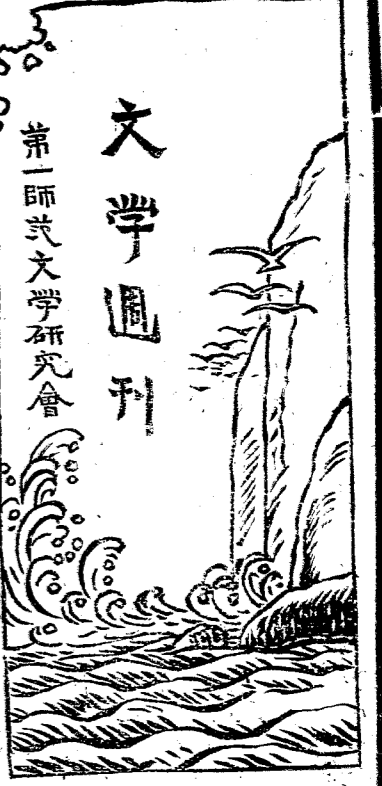 文学週刊
第一師范文学研究會